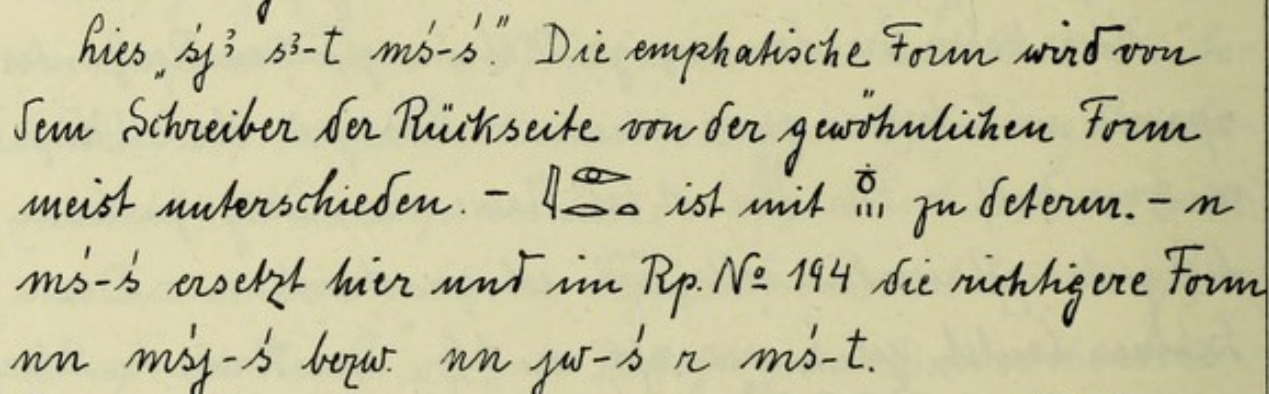 Lies „śjꜣ sꜣ-t mś-ś." Die emphatische Form wird von
dem Schreiber der Rückseite von der gewöhnlichen Form
meist unterschieden. – 𓇋𓁹𓂋𓏏 ist mit 𓏊𓏥 zu determ. – n
mś-ś ersetzt hier und im Rp. Nº 194 die richtigere Form
nn mśj-ś bezw. nn jw-ś r mś-t.